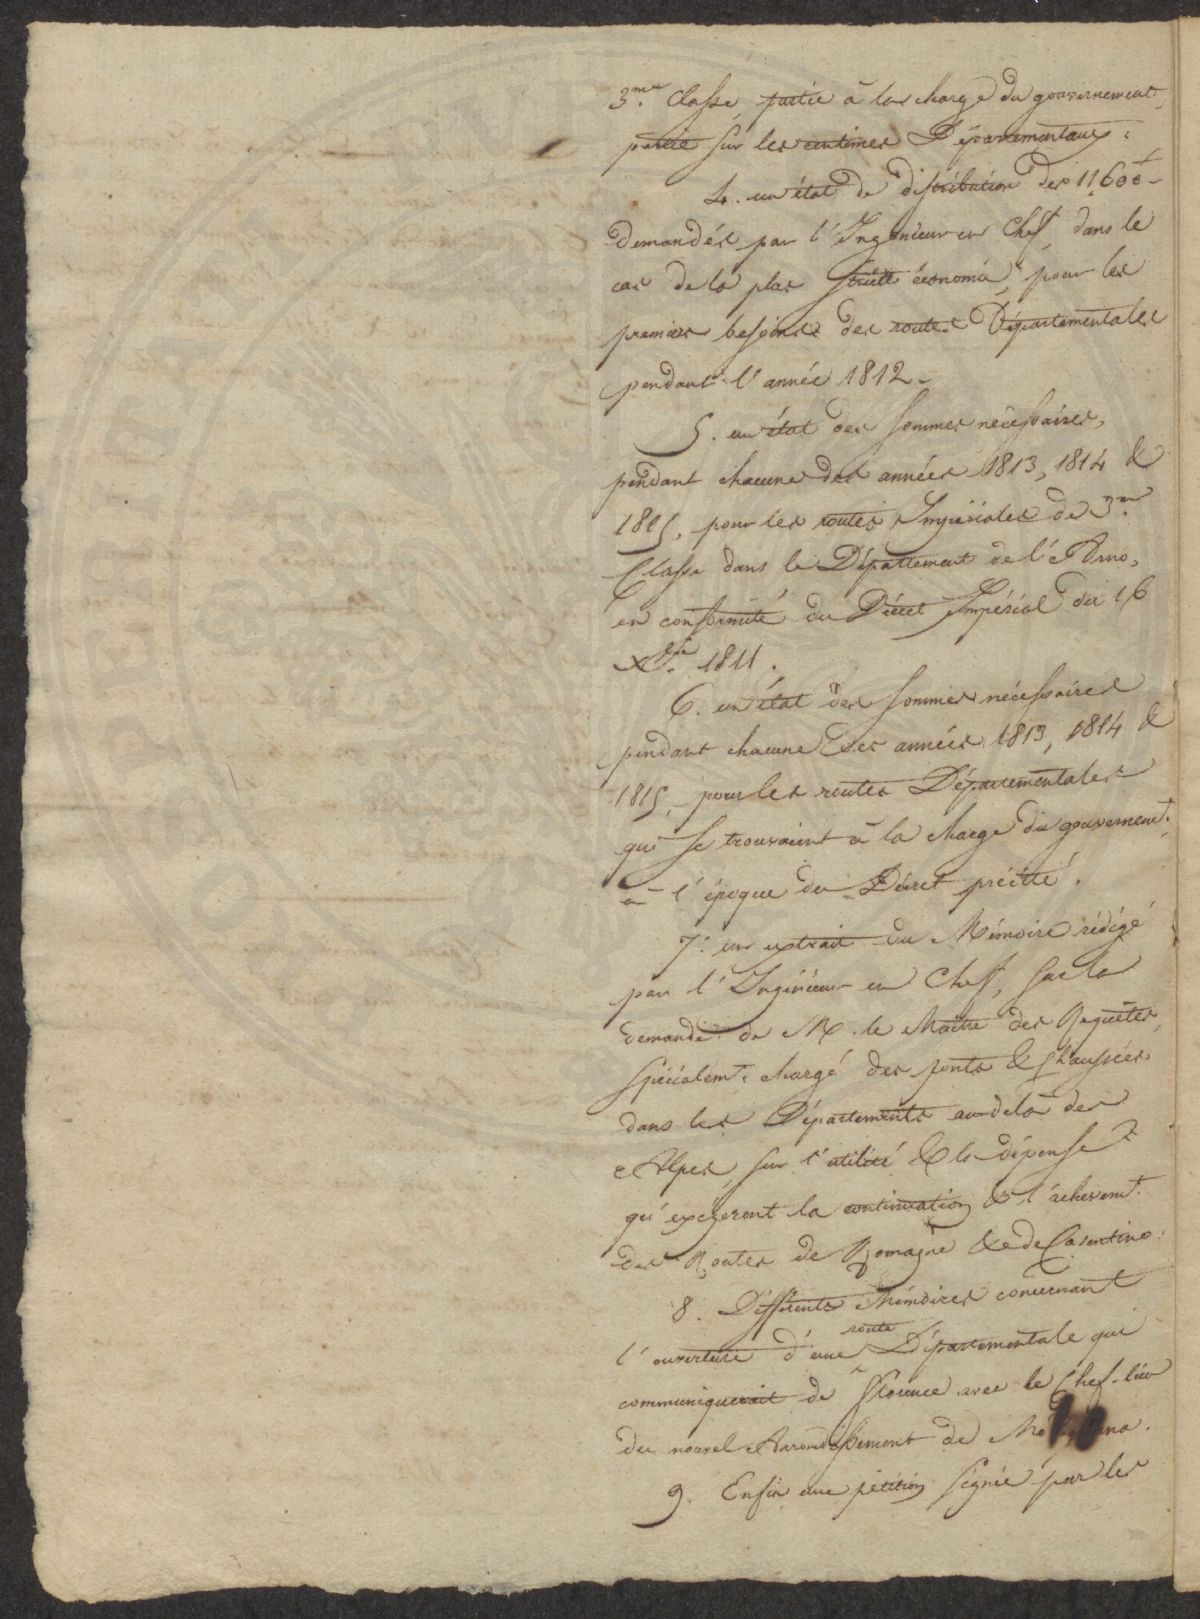 3.me Classe, partie à la charge du gouvernement,
partie sur les centimes Départementaux.
4. un état de distribution des 11600f
demandés par l'Ingenieur en Chef, dans le
cas de la plus stricte économie, pour les
premiers besoins des routes Départementales
pendant l'année 1812.
5. un état des sommes nécessaires,
pendant chacune des années 1813, 1814 &
1815, pour les routes Impériales de 3.me
Classe dans le Département de l'Arno,
en conformité du Décret Impérial du 16
Xbre 1811.
6. un état des sommes nécessaires
pendant chacune des années 1813, 1814 &
1815, pour les routes Départementales
qui se trouvaient à la charge du gouvernemt.
à l'époque du Décret précitté.
7. un extrait du Mémoire rédigé
par l'Ingénieur en Chef, sur la
demande de M. le Maitre des Requêtes,
spécialemt. chargé des ponts & Chaussées
dans les Départements au delà des
Alpes, sur l'utilité & la dépense
qu'exigeront la continuation & l'achevemt.
des Routes de Romagne & de Casentino.
8. Différents Mémoires concernant
l'ouverture d'une route Départementale qui
communiquerait de Florence avec le Chef-lieu
du nouvel Arrondissement de
9. Enfin une pétition signée par les